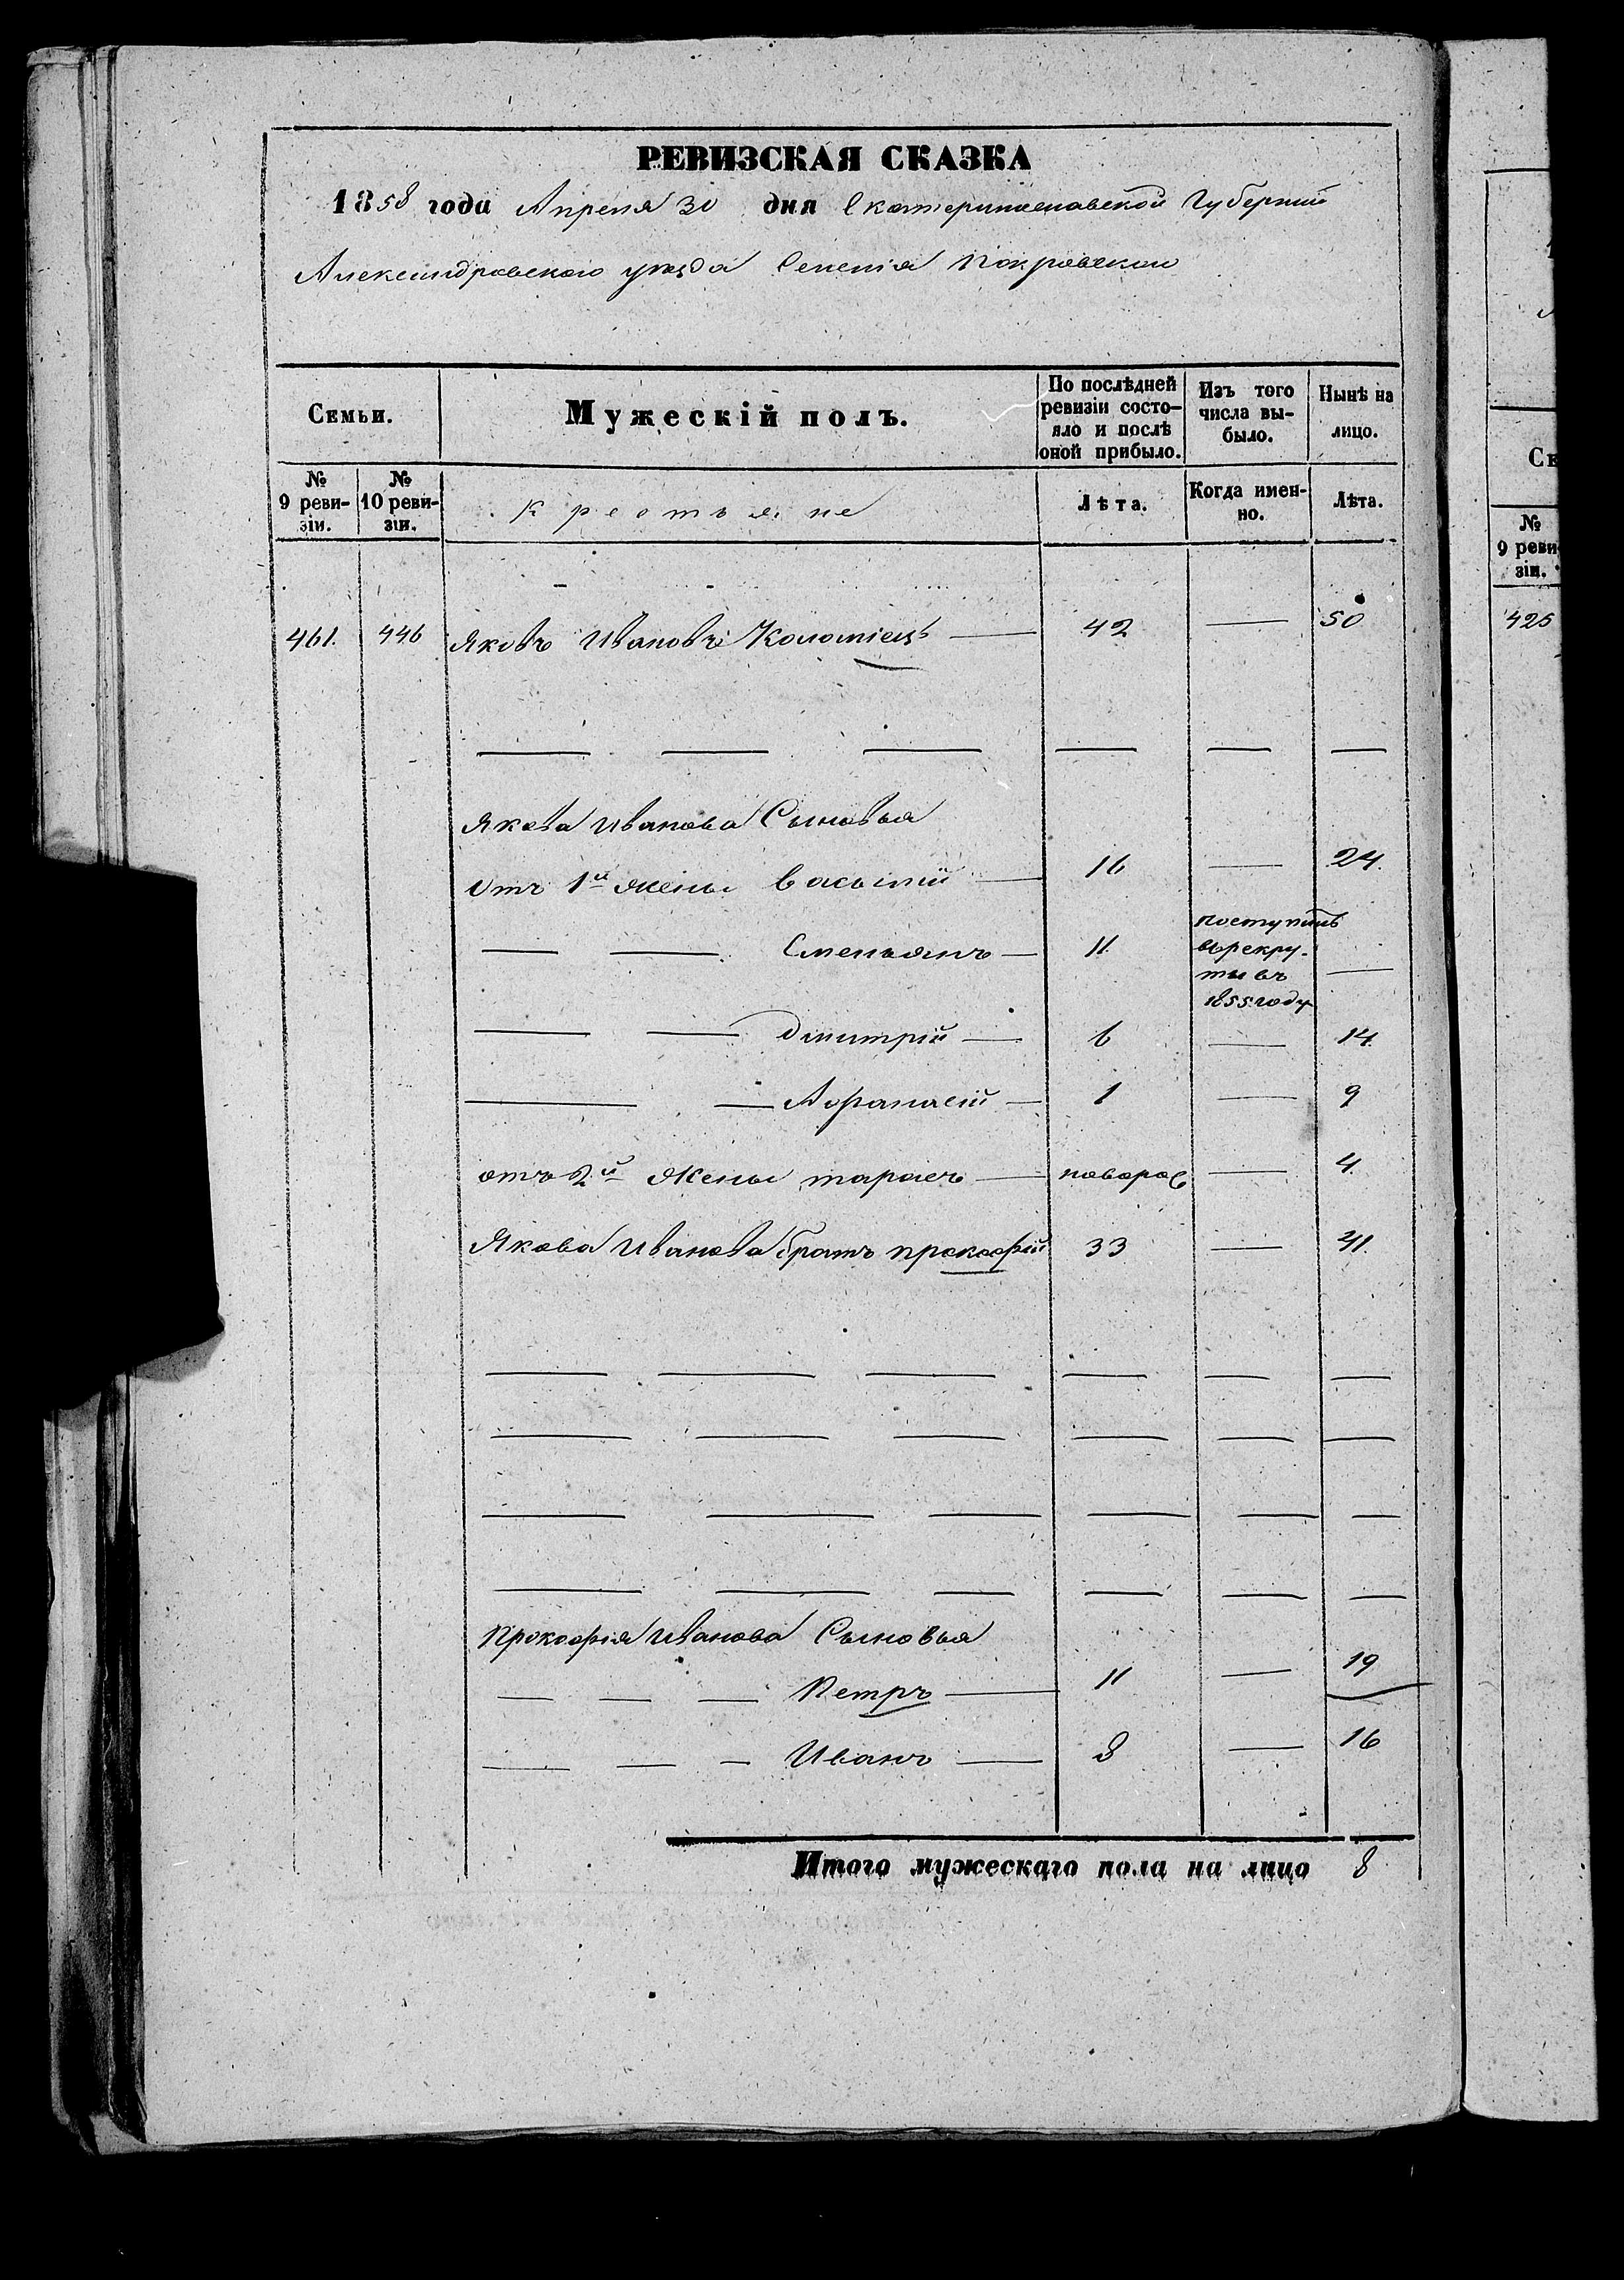 РЕВИЗСКАЯ СКАЗКА
1858 года Апреля 30 дня Екатеринославской Губернии
Александровского уезда Селенія Покровскои
Семьи.
Мужескій полъ.
По послѣдней ревизіи состо-яло и послѣ оной прибыло.
Изъ того числа вы-было.
Нынѣ на лицо.
№ 9 реви-зіи.
№ 10 реви-зіи.
Крестьяне
Лѣта.
Когда имен-но.
Лѣта.
461. 446 Яковъ Ивановъ Коломіецъ — 42 — 50
Якова Иванова Сыновья
Отъ 1й жены Василій — 16 — 24.
Емельянъ — 11
поступилъ
въ рекру-
ты въ
1855 году
—
Дмитрій — 6 — 14.
Афанасій — 1 — 9
отъ 2й Жены тарасъ — новорож — 4.
Якова Иванова братъ прокофій 33 — 41.
Прокофія Иванова Сыновья
Петръ — 11 — 19
Иванъ — 8 — 16
Итого мужескаго пола на лицо 8
№
9 реви
зіи.
425